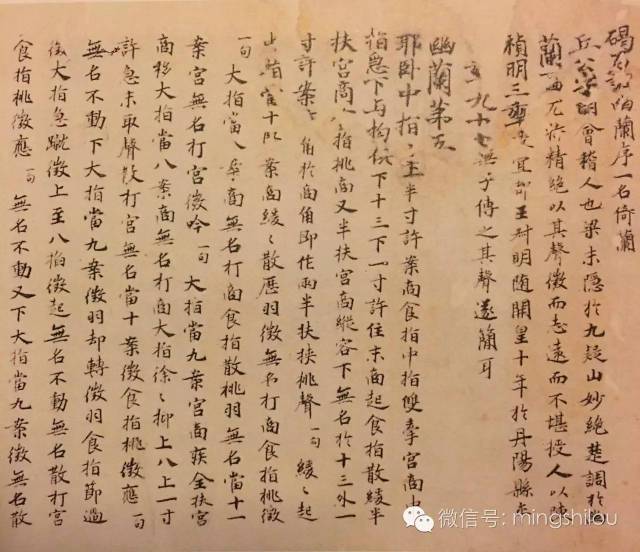 碣石調幽蘭序一名倚蘭
丘公字明會稽人也梁末隱於九疑山妙絕楚調於幽
蘭一曲尤特精絕以其聲微而志遠而不堪授人以陳
禎明三年授宜都王叔明隨開皇十年於丹陽縣卒
九十七無子傳之其聲遂簡耳
幽蘭第五
耶卧中指㆑半寸許案商食指中指雙牽宮商中
指急下与拘俱下十三下一寸許住末商起食指散緩半
扶宮商食指挑商又半扶宮商縱容下無名於十三外一
寸許案商角於商角即作兩半扶挾挑聲一句緩〻起
無名於十三外一寸許案商角
大指當八案商無名打商食指散挑羽無名當十一
案宮無名打宮徵吟一句大指當九案宮商疾全扶宮
商移大指當八案商無名打商大指徐〻抑上八上一寸
許急末取聲散打宮無名當十案徵食指挑徵應一句
無名不動下大指當九案徵羽却轉徵羽食指節過
徵大指急蹴徵上至八拍徵起無名不動無名散打宮
食指挑徵應一句無名不動又下大指當九案徵無名散
微信号: mingshilou